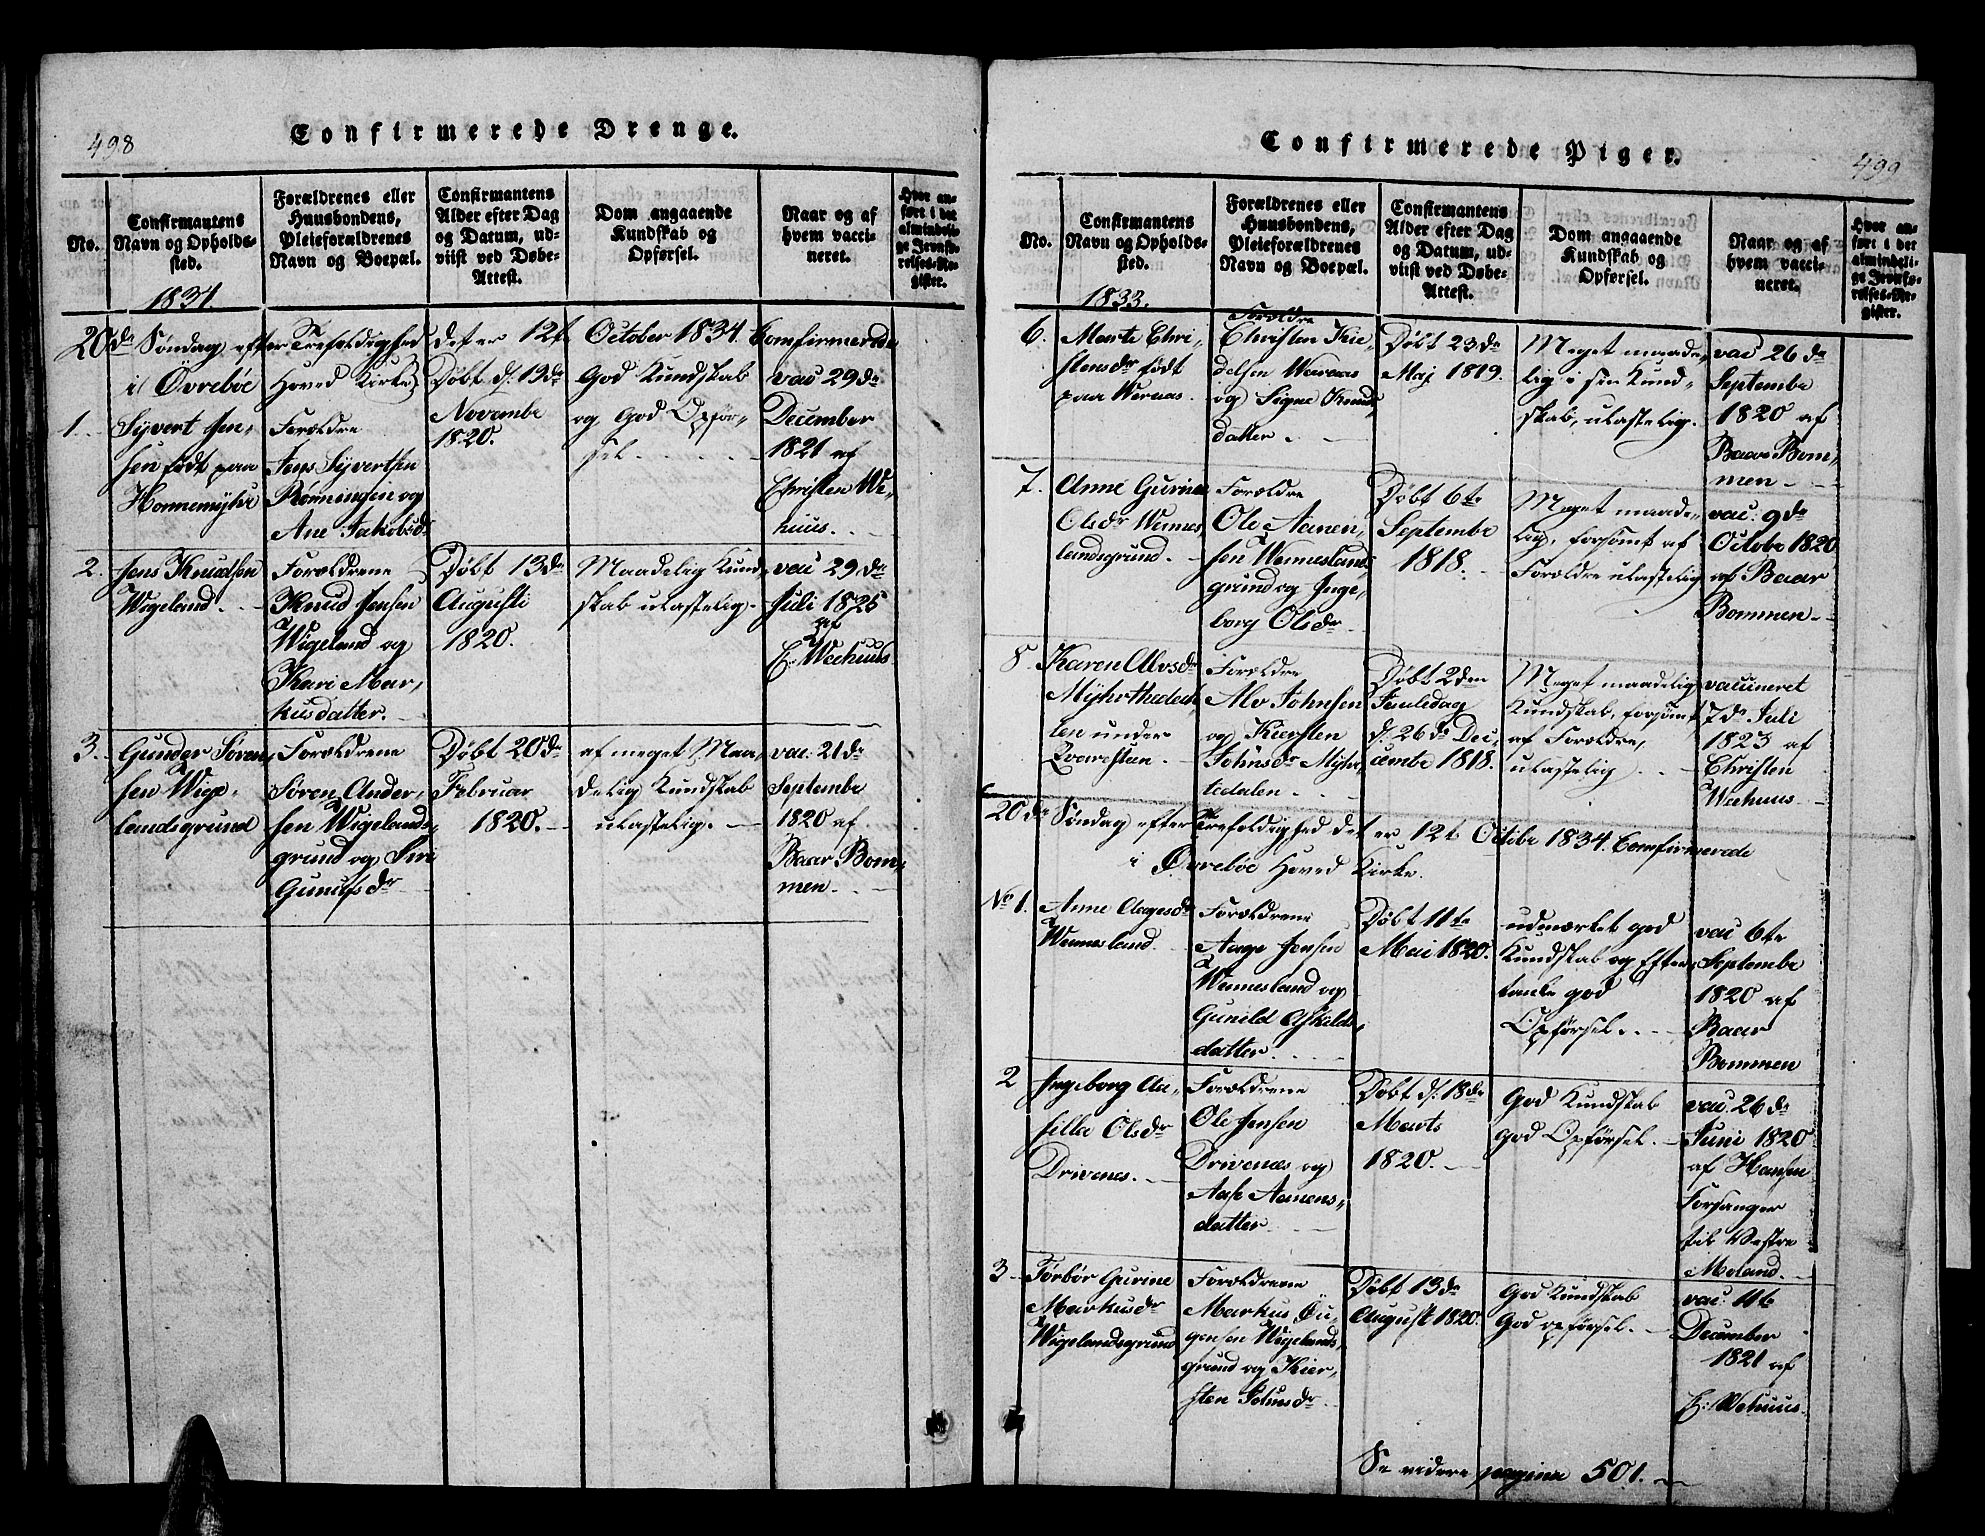 498
Confirmerede Drenge.
No.
Confirmantens
Navn og Opholds-
sted.
Forældrenes eller
Huusbondens,
Pleieforældrenes
Navn og Boepæl.
Confirmantens
Alder efter Dag
og Datum, ud-
viist ved Døbe-
Attest.
Dom angaaende
Kundskab og
Opførsel.
Naar og af
hvem vacci-
neret.
Hvor an-
ført i det
almindeli-
ge Jevnfø-
relses-Re-
gister.
1834.
20de Søndag efter Trefoldighed det er 12te October 1834 Comfirmerede
i Øvrebøe Hoved Kirke
1.
Syvert Jen-
sen født paa
Forældre
Jens Syvertsen
Rønningen og
Ane Jakobsdr
Døbt d: 19de
Novembe
1820.
God Kundskab
og God Opfør-
sel.
vac 29de
December
1821 af
Christen We-
huus.
2.
Jens Knudsen
Wigeland.
Forældrene
Knud Jensen
Wigeland og
Kari Mar-
kusdatter.
Døbt 13de
Augusti
1820.
Maadelig Kund-
skab ulastelig.
vac 29de
Juli 1825
af
C: Weehuus
3.
Gunder Søren-
sen Wige-
landsgrund
Forældrene
Søren Ander-
sen Wigelands-
grund og Siri
Gunufsdr
Døbt 20de
Februar
1820.
af meget Maa-
delig Kundskab
ulastelig.
vac. 21de
Septembe
1820 af
Baar Bom-
men.
Confirmerede Piger.
499
No.
Confirmantens
Navn og Opholds-
sted.
Forældrenes eller
Huusbondens,
Pleieforældrenes
Navn og Boepæl.
Confirmantens
Alder efter Dag
og Datum, ud-
viist ved Døbe-
Attest.
Dom angaaende
Kundskab og
Opførsel.
Naar og af
hvem vacci-
neret.
Hvor an-
ført i det
almindeli-
ge Jevnfø-
relses-Re-
gister.
1833.
6.
Marte Chri-
stensdr født
paa Wernæs.
Forældre
Christen Kie-
delsen Wernæs
og Signe Knuds-
datter.
Døbt 23de
Maj 1819.
Meget maade-
lig i sin Kund-
skab, ulastelig.
vac 26de
Septembe
1820 af
Baar Bom-
men
7.
Anne Gurine
Olsdr Wennes-
landsgrund.
Forældre
Ole Aanen-
sen Wenneslands-
grund og Inge-
borg Olsdr
Døbt 6te
Septembe
1818.
Meget maade-
lig, forsømt af
Forældre ulastelig
vac: 9de
Octobe 1820
af Baar
Bommen
8.
Karen Alvsdr
Myhrthedal-
len under
Forældre
Alv Johnsen
og Kiersten
Johnsdr Myhr-
tedalen.
Døbt 2den
Juuledag
d: 26de Dec-
cembe 1818.
Meget maadelig
Kundskab, forsømt
af Forældre,
ulastelig.
vaccineret
7de Juli
1823 af
Christen
Weehuus
20de Søndag efter Trefoldighed det er 12te Octobe 1834. Comfirmerede
i Øvrebøe Hoved Kirke.
No 1.
Anne Aagesdr
Wennesland.
Forældrene
Aage Jensen
Wennesland og
Gunild Askilds-
datter.
Døbt 11te
Mai 1820.
udmærket god
Kundskab og Efter-
tanke god
Opførsel.
vac 6te
Septembe
1820 af
Baar
Bommen
2
Ingeborg Aa-
silla Olsdr
Drivenes.
Forældrene
Ole Jensen
Drivenæs og
Aase Aanens-
datter
Døbt d: 18de
Marts
1820.
God Kundskab
god Opførsel.
vac. 26de
Juni 1820
af Hansen
Forsanger
til Vestre
Moland.
3
Tørbør Gurine
Markusdr
Wigelandsgrund
Forældrene
Markus
Wigelands-
grund og Kier-
sten
Døbt 13de
August 1820.
God Kundskab
God opførsel.
vac: 11te
December
1821 af
C: Wehuus.
Se videre pagina 501.